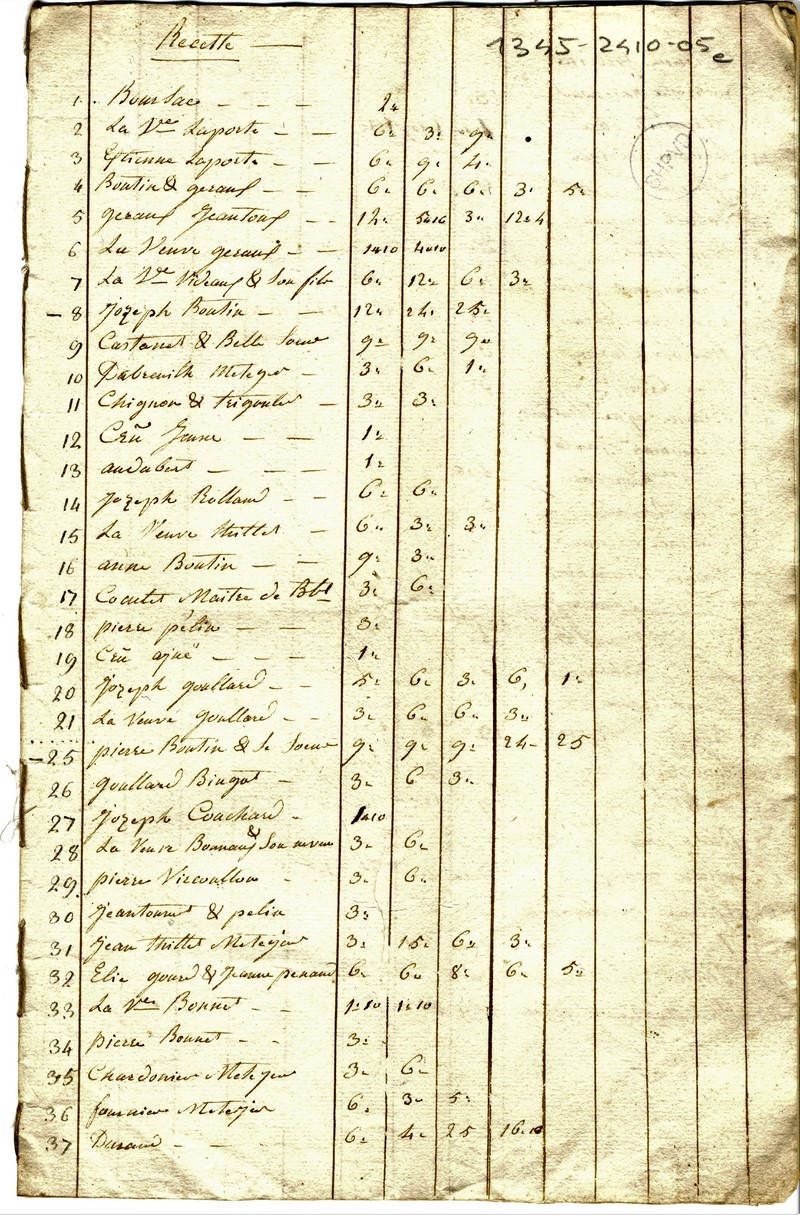 Recette — 1345-2410-05e
SHPVD
1 . Boursac - - - 2"
2 La Vve Laporte - - 6" 3" 9"
3 Etienne Laporte - - 6" 9" 4"
4 Boutin & geraud - - 6" 6" 6" 3" 5"
5 geraud Jeantoux - - 12" 5"16 3" 12"4
6 La Veuve geraud - - 1"10 4"10
7 La Vve Videaux & Son fils 6" 12" 6" 3"
- 8 Jozeph Boutin - - 12" 24" 25"
9 Castanet & Belle Soeur 9" 9" 9"
10 Dabreuilh Meteyer - 3" 6" 1"
11 Chignon & trigoulet - 3" 3"
12 Crû Jeune - - 1"
13 audabert - - - 1"
14 Jozeph Rolland - - 6" 6"
15 La Veuve thillet - 6" 3" 3"
16 anne Boutin - - 9" 3"
17 Coculet Maitre de Bât 3" 6"
18 pierre pelin - - 3"
19 Crû ajné - - - 1"
20 Jozeph goullard - - 5" 6" 3" 6, 1"
21 La Veuve Goullard - - 3" 6" 6" 3"
- 25 pierre Boutin & Se Soeur 9" 9" 9" 24- 25
26 goullard Bingot - 3" 6 3"
27 Jozeph Couchard - 1"10
28 La Veuve Bonnaud & Son neveu 3" 6"
29 pierre - 3" 6"
30 Jeantounet & pelin 3"
31 Jean thillet Meteyer 3" 15" 6" 3"
32 Elie gourd & Jeanne penaud 6" 6" 8" 6" 5"
33 La Vve Bonnet - - 1"10 1"10
34 pierre Bonnet - - 3"
35 Chardonier Meteyer 3" 6"
36 fournier Meteyer 6" 3" 5"
37 Durand - - - 6" 4" 25 16"10